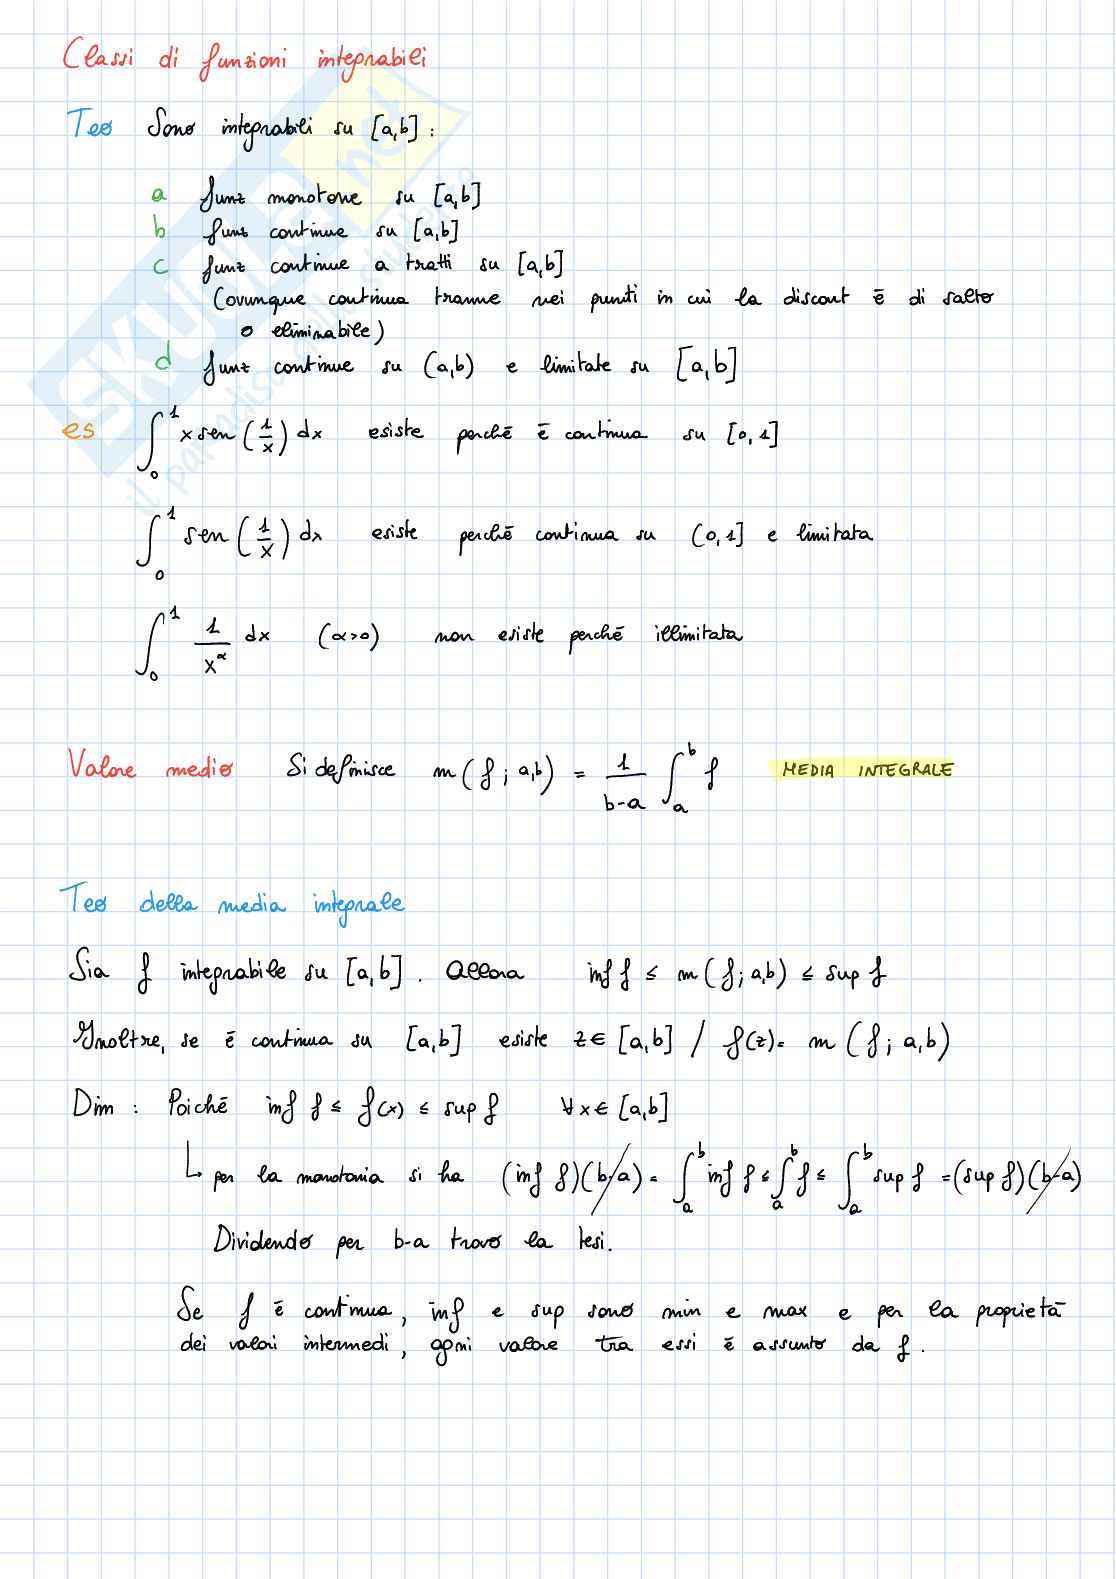 Classi di funzioni integrabili
Teo Sono integrabili su [a,b] :
a funz monotone su [a,b]
b funz continue su [a,b]
c funz continue a tratti su [a,b]
(ovunque continua tranne nei punti in cui la discont è di salto
o eliminabile)
d funz continue su (a,b) e limitate su [a,b]
es ∫₀¹ x sen(1/x) dx esiste perché è continua su [0,1]
∫₀¹ sen(1/x) dx esiste perché continua su (0,1] e limitata
∫₀¹ 1/x^α dx (α>0) non esiste perché illimitata
Valore medio Si definisce m(f; a,b) = 1/(b-a) ∫ₐᵇ f MEDIA INTEGRALE
Teo della media integrale
Sia f integrabile su [a,b]. Allora inf f ≤ m(f; a,b) ≤ sup f
Inoltre, se è continua su [a,b] esiste z ∈ [a,b] / f(z) = m(f; a,b)
Dim : Poiché inf f ≤ f(x) ≤ sup f ∀ x ∈ [a,b]
↳ per la monotonia si ha (inf f)(b-a) = ∫ₐᵇ inf f ≤ ∫ₐᵇ f ≤ ∫ₐᵇ sup f = (sup f)(b-a)
Dividendo per b-a trovo la tesi.
Se f è continua, inf e sup sono min e max e per la proprietà
dei valori intermedi, ogni valore tra essi è assunto da f.
SKUOLA.net